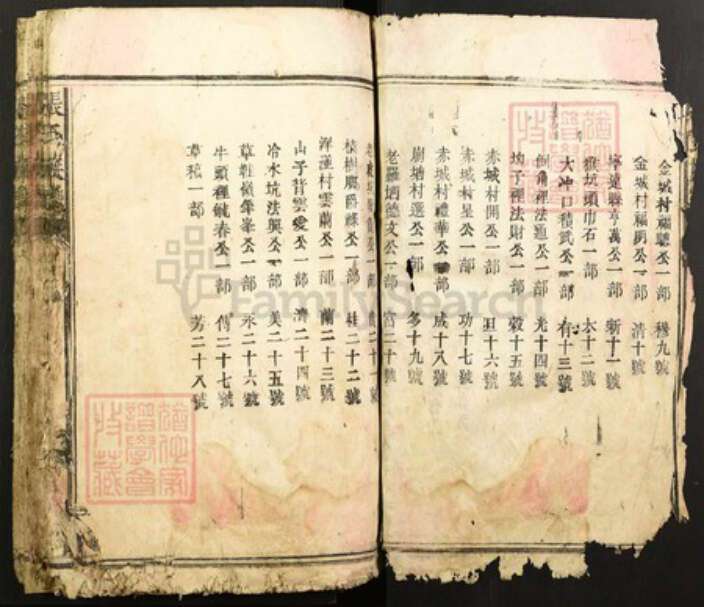 金城村福聰公一部 穆九號
金城村福易公一部 清十號
寧遠縣亨萬公一部 斯十一號
猴坑頭巾石一部 木十二號
大冲口積武公一部 有十三號
倒角裡法通公一部 光十四號
坳子裡法財公一部 毅十五號
赤城村開公一部 丑十六號
赤城村呈公一部 功十七號
赤城村禮華公一部 成十八號
廟塘村選公一部 多十九號
老羅塘德文公一部 富二十號
公一部 二十一號
樹腳爵祿公一部 桂二十二號
洋蓮村雲蘭公一部 蘭二十三號
山子背雲愛公一部 濟二十四號
冷水坑法興公一部 美二十五號
草鞋嶺肇奉公一部 永二十六號
牛頭裡毓春公一部 傳二十七號
草稿一部 芳二十八號
張氏
FamilySearch